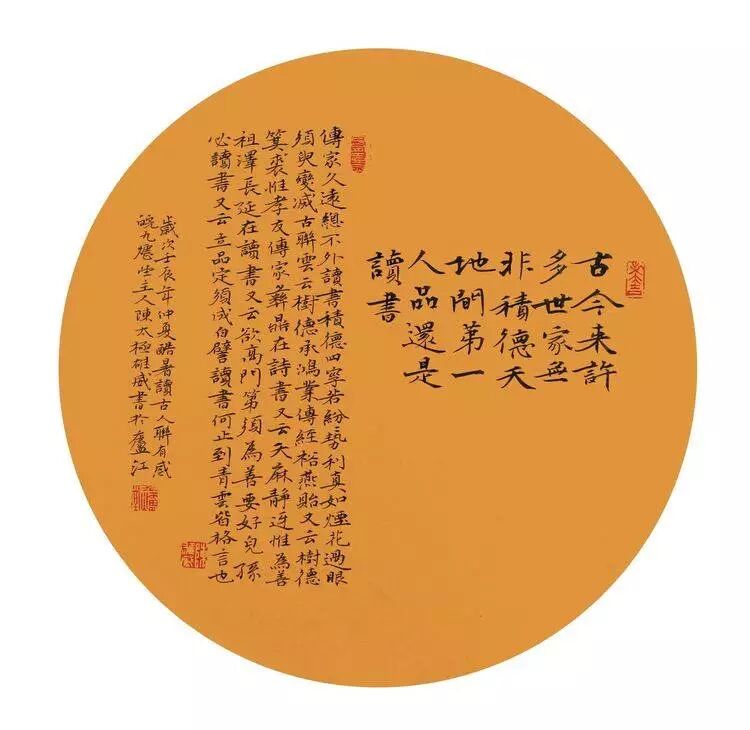 古今来許
多世家無
非積德天
地間第一
人品還是
讀書
傳家久遠總不外讀書積德四寧若紛勢利真如煙花過眼
須臾變滅古聯雲云樹德承鴻業傳經裕燕貽又云樹德
箕裘惟孝友傳家彝鼎在詩書又云天庥靜迓惟為善
祖澤長延在讀書又云欲高門第須為善要好兒孫
必讀書又云立品定須成白璧讀書何止到青雲皆格言也
歲次壬辰年仲夏酷暑讀古人聯有感
皖九主人陳太極雄威書於廬江